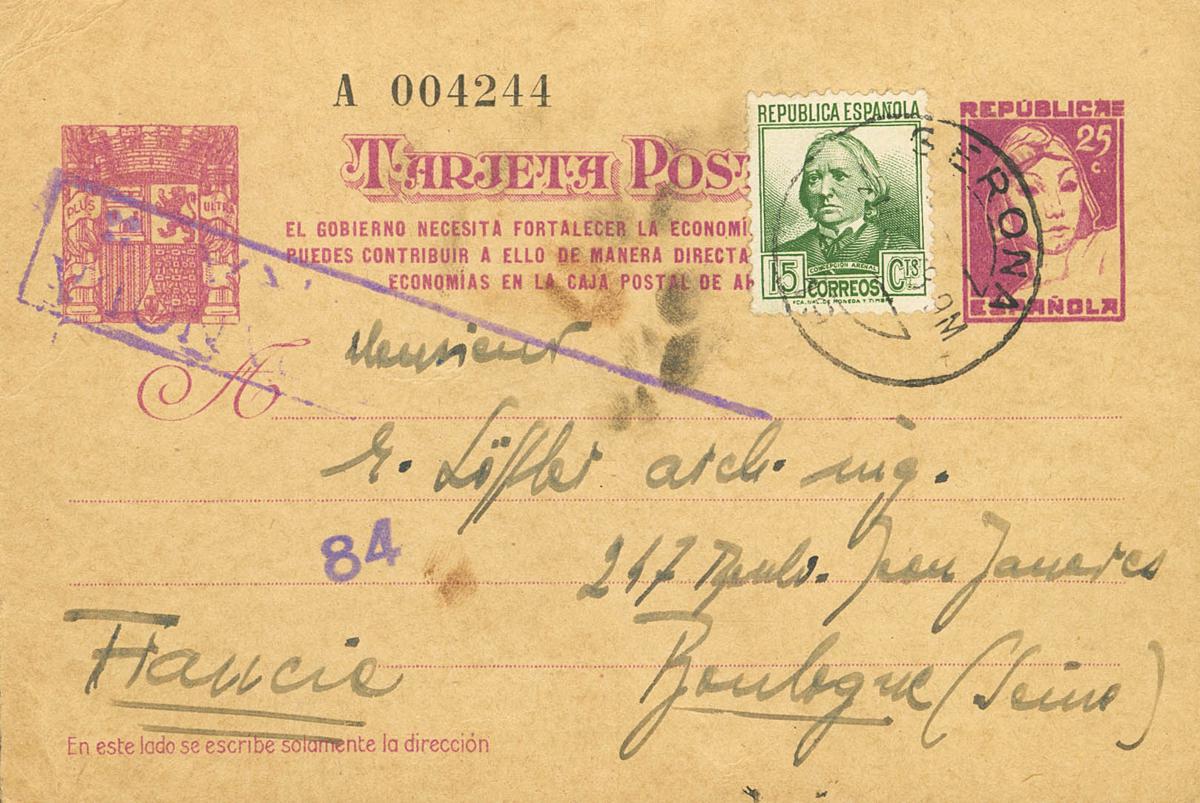 A 004244
REPÚBLICA ESPAÑOLA
REPÚBLICA
25 c.
TARJETA POS
PLUS ULTRA
EL GOBIERNO NECESITA FORTALECER LA ECONOMÍ
PUEDES CONTRIBUIR A ELLO DE MANERA DIRECTA
ECONOMÍAS EN LA CAJA POSTAL DE AH
CONCEPCIÓN ARENAL
15 CTS
CORREOS
FCA. NAL. DE MONEDA Y TIMBRE
GERONA
ESPAÑOLA
A Monsieur
E. Löffler arch. ing.
84
247 Boulv. Jean Jaurès
Francie
Boulogne (Seine)
En este lado se escribe solamente la dirección